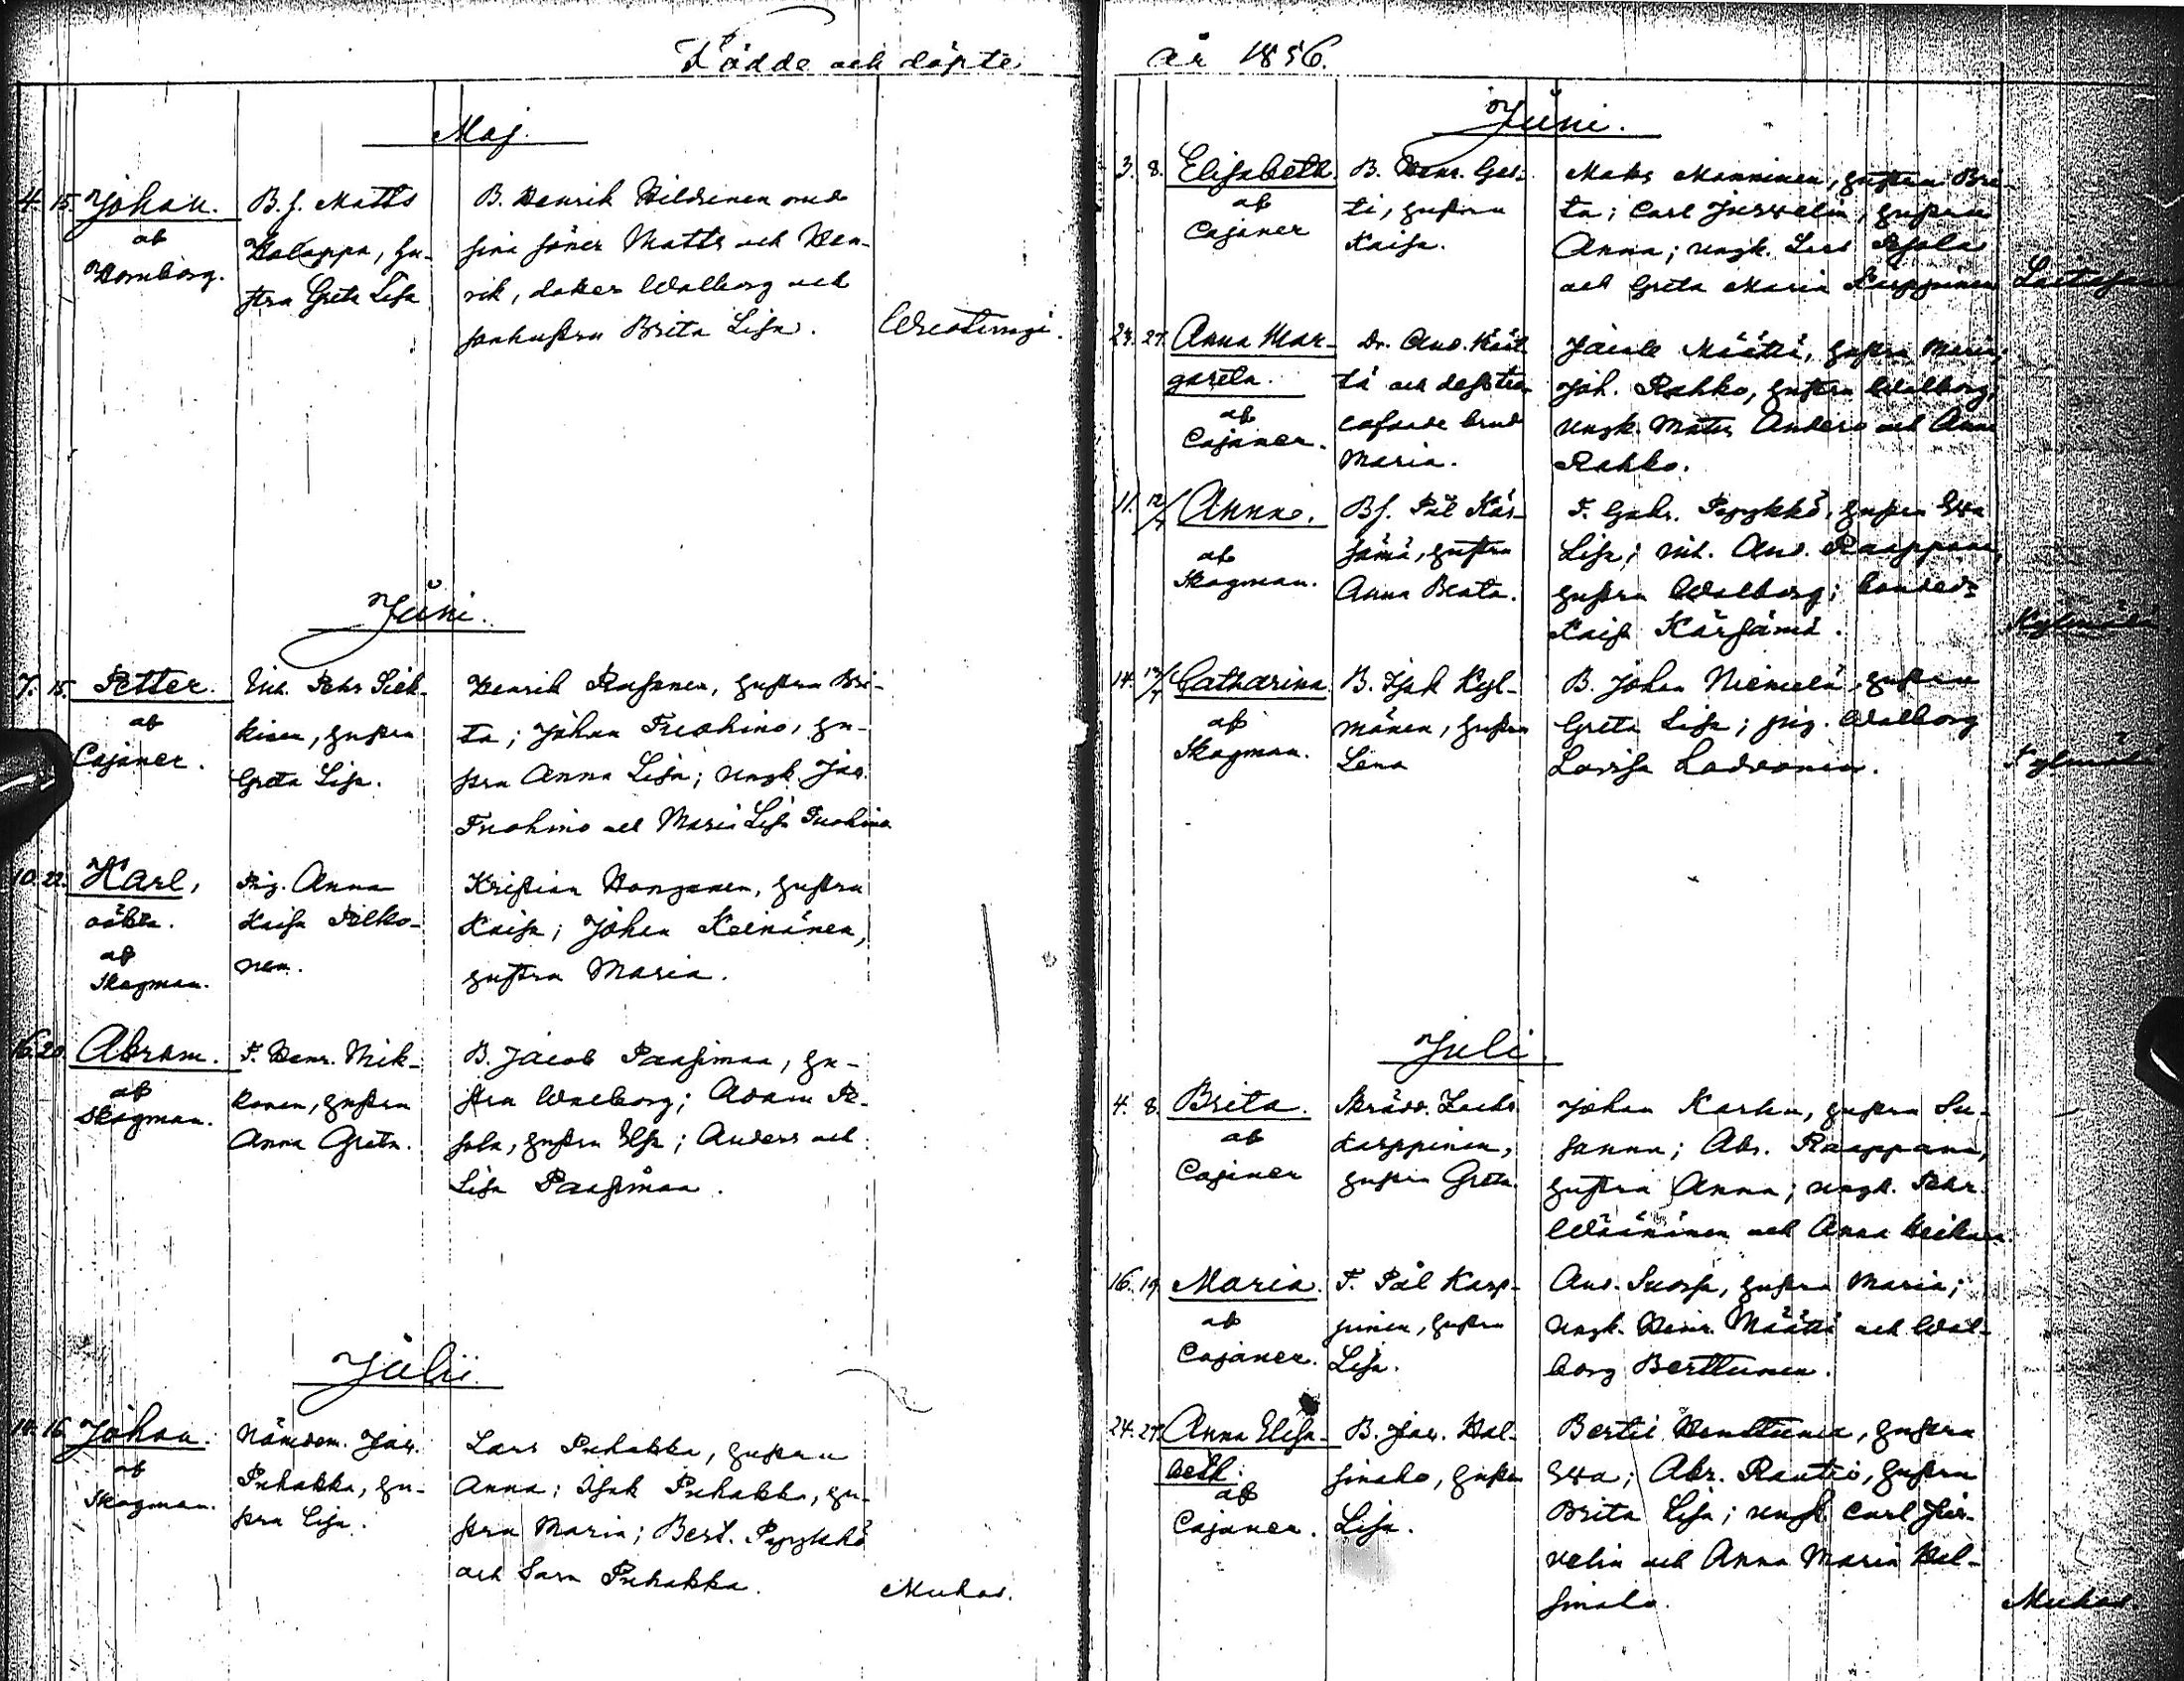 Födde och döpte
år 1856.
Maj.
4. 15. Johan.
af
Hornborg.
B. f. Matts
Halappa, hu-
stru Greta Lisa
B. Henrik Hildrenen med
sina söner Matts och Hen-
rik, dotter Walborg och
sonhustru Brita Lisa.
Juni.
7. 15. Petter.
af
Cajaner.
Inh. Pehr Siek-
kinen, hustru
Greta Lisa.
Henrik Rusanen, hustru Bri-
ta; Johan Tuohino, hu-
stru Anna Lisa; ungk. Jac.
Tuohino och Maria Lisa Tuohino
10. 22. Karl,
oäkta.
af
Skogman.
Pig. Anna
Kaisa Pelko-
nen.
Kristian Honganen, hustru
Kaisa; Johan Keinänen,
hustru Maria.
16. 20. Abram.
af
Skogman.
T. Henr. Mik-
konen, hustru
Anna Greta.
B. Jacob Paasimaa, hu-
stru Walborg; Adam
hustru Elsa; Anders och
Lisa Paasimaa.
Julii.
14. 16. Johan.
af
Skogman.
Nämdem. Jac.
Puhakka, hu-
stru Lisa.
Lars Puhakka, hustru
Anna; Isak Puhakka, hu-
stru Maria; Bert. Pyykkö
och Sara Puhakka.
Muhos.
Juni.
3. 8. Elisabeth
af
Cajaner
B. Henr. Ges-
ti, hustru
Kaisa.
Matts Manninen, hustru Bri-
ta; Carl Jurvelin, hustru
Anna; ungk. Lars
och Greta Maria Karppinen
24. 27. Anna Mar-
gareta.
af
Cajaner.
Dr. And. Määt-
tä och dess tro-
lofvade brud
Maria.
Jacob Määttä, hustru Maria;
Joh. Rahko, hustru Walborg;
ungk. Matts Anders och Anna
Rahko.
11. 12/7 Anna.
af
Skogman.
Bf. Pål Kär-
sämä, hustru
Anna Beata.
T. Gabr. Pyykkö, hustru Eva
Lisa; inh. And. Raappana,
hustru Walborg; bondedr
Kaisa Kärsämä.
Kylmälä
14. 12/7 Catharina
af
Skogman.
B. Isak Kyl-
mänen, hustru
Lena
B. Johan Niemelä, hustru
Greta Lisa; pig. Walborg
Lovisa
Kylmälä
Juli.
4. 8. Brita.
af
Cajaner
Skrädd. Zachr.
Karppinen,
hustru Greta.
Johan Karhu, hustru Su-
sanna; Abr. Raappana,
hustru Anna; ungk. Pehr
Wäänänen och Anna Heikura
16. 19. Maria.
af
Cajaner.
T. Pål Karp-
pinen, hustru
Lisa.
And. Suorsa, hustru Maria;
ungk. Henr. Määttä och Wal-
borg Berttunen.
24. 27. Anna Elisa-
beth.
af
Cajaner.
B. Jac. Hal-
sinaho, hustru
Lisa.
Bertil Henttunen, hustru
Eva; Abr. Rautio, hustru
Brita Lisa; ungk. Carl Jur-
velin och Anna Maria Hal-
sinaho.
Muhos